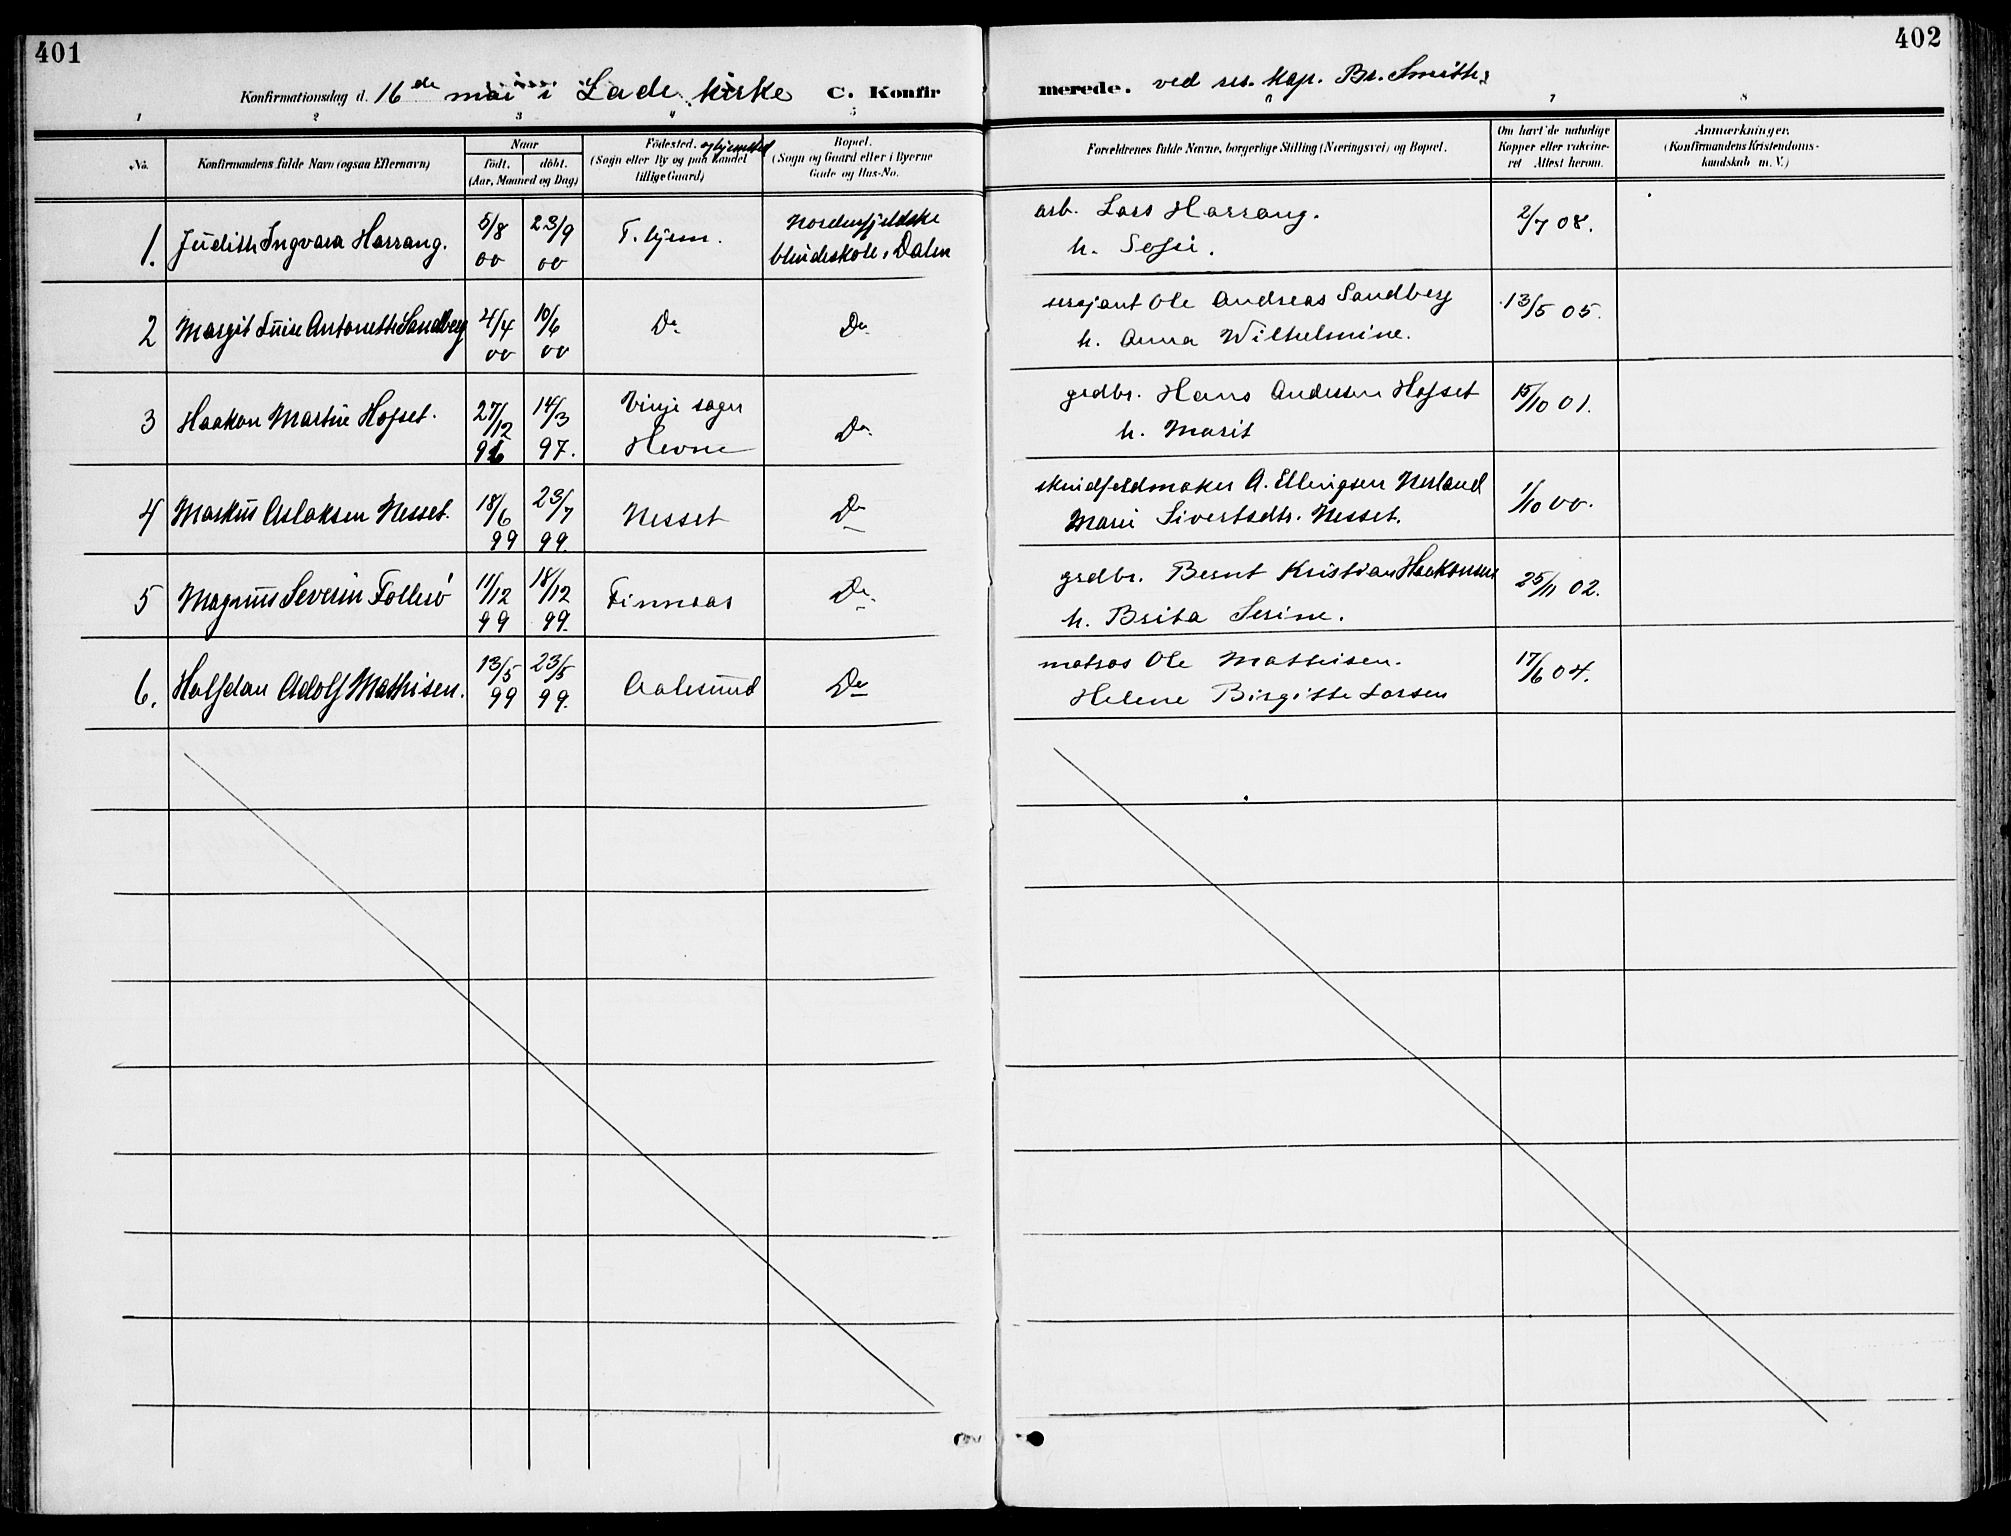 401
402
Konfirmationsdag d. 16de mai i Lade kirke C. Konfir
merede. ved res. kap. Br. Smith.
1 2 3 4 5
6 7 8
No.
Konfirmandens fulde Navn (ogsaa Efternavn)
Naar
födt. döbt.
(Aar, Maaned og Dag)
Födested. og hjemsted
(Sogn eller By og paa Landet
tillige Gaard)
Bopæl.
(Sogn og Gaard eller i Byerne
Gade og Hus-No.
Forældrenes fulde Navne, borgerlige Stilling (Næringsvei) og Bopæl.
Om havt de naturlige
Kopper eller vakcine-
ret Attest herom.
Anmærkninger.
(Konfirmandens Kristendoms-
kundskab m. V.)
1. Judith Ingvara Harrang. 5/8 00 23/9 00 T.hjem. Nordenfjeldske
blindeskole, Dalen
arb. Lars Harrang.
h. Sofie.
2/7 08.
2 Margit Luise Antonette Sandberg 4/4 00 10/6 00 Do Do
sersjant Ole Andreas Sandberg
h. Anna Wilhelmine.
13/5 05.
3 Haakon Martin Hofset. 27/12 96 14/3 97. Vinje sogn
Hevne Do
grdbr. Hans Andersen Hofset
h. Marit
15/10 01.
4 Markus Aslaksen Nesset. 18/6 99 23/7 99. Nesset Do
skindfeldmaker A. Ellingsen Nerland
Marie Sivertsdtr. Nesset.
1/10 00.
5 Magnus Severin Follesö 11/12 99 18/12 99. Finnaas Do
grdbr. Bernt Kristian Haakonsen
h. Brita Serine.
25/11 02.
6. Halfdan Adolf Mathisen. 13/5 99 23/5 99. Aalesund Do
matros Ole Mathisen.
Helene Birgitte Larsen
17/6 04.